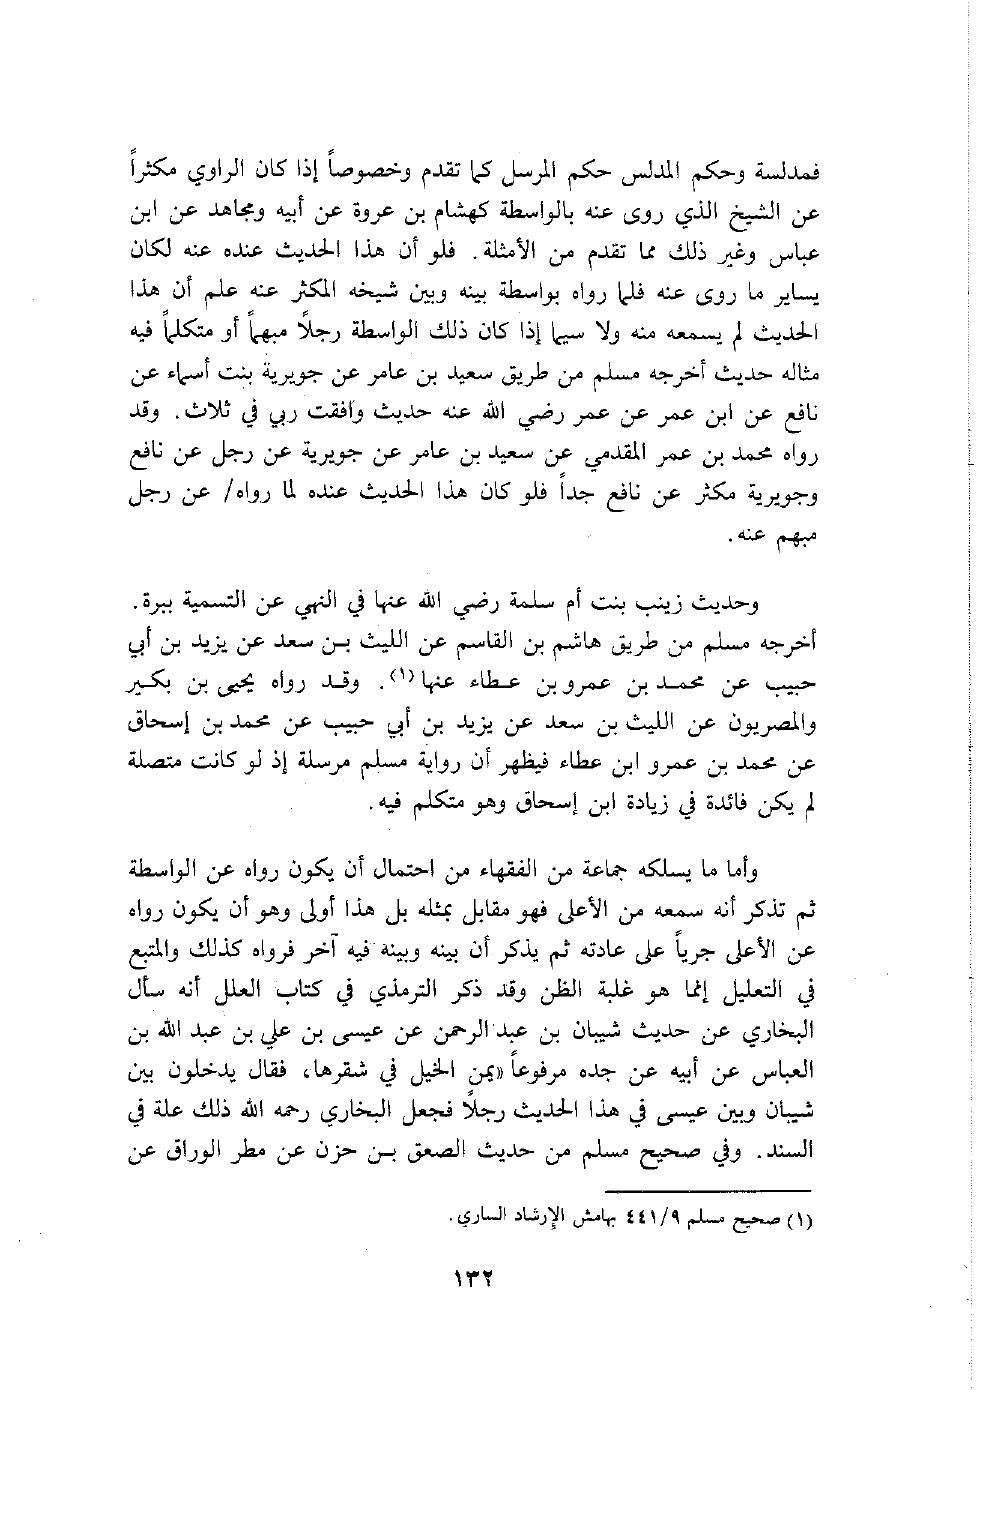 فمدلسة وحكم المدلس حكم المرسل كما تقدم وخصوصاً إذا كان الراوي مكثراً
عن الشيخ الذي روى عنه بالواسطة كهشام بن عروة عن أبيه ومجاهد عن ابن
عباس وغير ذلك مما تقدم من الأمثلة. فلو أن هذا الحديث عنده عنه لكان
يساير ما روى عنه فلما رواه بواسطة بينه وبين شيخه المكثر عنه علم أن هذا
الحديث لم يسمعه منه ولا سيما إذا كان ذلك الواسطة رجلاً مبهماً أو متكلماً فيه
مثاله حديث أخرجه مسلم من طريق سعيد بن عامر عن جويرية بنت أسماء عن
نافع عن ابن عمر عن عمر رضي الله عنه حديث وافقت ربي في ثلاث. وقد
رواه محمد بن عمر المقدمي عن سعيد بن عامر عن جويرية عن رجل عن نافع
وجويرية مكثر عن نافع جداً فلو كان هذا الحديث عنده لما رواه/ عن رجل
مبهم عنه.
وحديث زينب بنت أم سلمة رضي الله عنها في النهي عن التسمية ببرة.
أخرجه مسلم من طريق هاشم بن القاسم عن الليث بن سعد عن يزيد بن أبي
حبيب عن محمد بن عمرو بن عطاء عنها(١). وقد رواه يحيى بن بكير
والمصريون عن الليث بن سعد عن يزيد بن أبي حبيب عن محمد بن إسحاق
عن محمد بن عمرو ابن عطاء فيظهر أن رواية مسلم مرسلة إذ لو كانت متصلة
لم يكن فائدة في زيادة ابن إسحاق وهو متكلم فيه.
وأما ما يسلكه جماعة من الفقهاء من احتمال أن يكون رواه عن الواسطة
ثم تذكر أنه سمعه من الأعلى فهو مقابل بمثله بل هذا أولى وهو أن يكون رواه
عن الأعلى جرياً على عادته ثم يذكر أن بينه وبينه فيه آخر فرواه كذلك والمتبع
في التعليل إنما هو غلبة الظن وقد ذكر الترمذي في كتاب العلل أنه سأل
البخاري عن حديث شيبان بن عبد الرحمن عن عيسى بن علي بن عبد الله بن
العباس عن أبيه عن جده مرفوعاً «يمن الخيل في شقرها، فقال يدخلون بين
شيبان وبين عيسى في هذا الحديث رجلاً فجعل البخاري رحمه الله ذلك علة في
السند. وفي صحيح مسلم من حديث الصعق بن حزن عن مطر الوراق عن
(١) صحيح مسلم ٤٤١/٩ بهامش الإرشاد الساري.
١٣٢